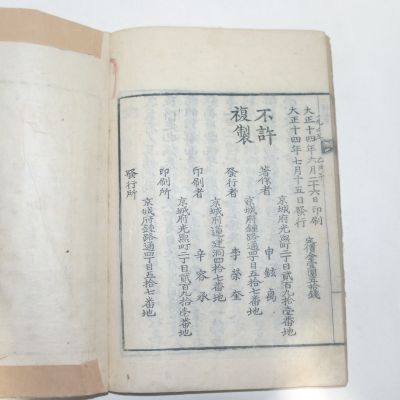 大正十四年六月二十六日印刷
大正十四年七月十五日發行
定價金壹圓五拾錢
不許
複製
京城府光熙町二丁目貳百九拾壹番地
著作者 申鉉禹
京城府鍾路通四丁目五拾七番地
發行者 李榮奎
京城府蓮建洞四拾七番地
印刷者 辛容承
京城府光熙町二丁目貳百九拾壹番地
印刷所
京城府鍾路通四丁目五拾七番地
發行所